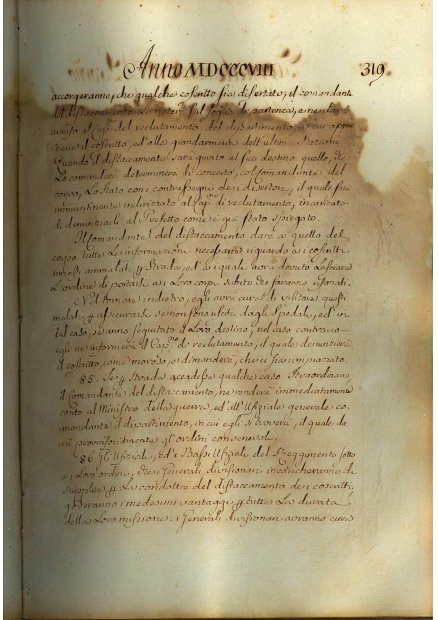 Anno MDCCCVIII 319
accorgeranno, che qualche coscritto sia disertato, il comandante
del distaccamento lo noterà sul foglio de partenza, e ne darà
avviso al Cap: del reclutamento del dipartimento a cui appar
tiene il coscritto, ed alla giandarmeria dell'ultima Stazione
Quando il distaccamento sarà giunto al suo destino quello, che
Lo comanderà determinerà di concerto, col Comandante del
corpo, Lo Stato con i contrassegni de i desertori, il quale sia
immantinente indirizato al Cap: di reclutamento, incaricato
de denunziarli al Prefetto come è già stato spiegato.
Il Comandante del distaccamento darà a quello del
corpo tutte Le informazioni necessarie riguardo a i coscritti
rimasti ammalati p Strada, ed a i quali avrà dovuto Lasciare
L'ordine di portarsi a i Loro corpi subito che saranno risanati.
Nel tornare indietro, egli avrà cura di visitare questi
malati, p assicurarsi se non sono usciti dagli Spedali, ed in
tal caso, se anno seguitato il Loro destino; nel caso contrario
egli ne informerà il Cap:no de reclutamento, il quale denunzierà
il coscritto, come moroso, e dimanderà, che ei sia rimpiazzato.
85. Se p Strada accadesse qualche caso straordinario
il Comandante del distaccamento, ne renderà immediatamente
conto al Ministro della guerra, ed all'Ufiziale generale co-
mandante il dipartimento, in cui egli si troverà, il quale da
rà provvisoriamente gl'ordini convenevoli.
86. Gli Ufiziali, ed i Bassi Ufiziali del Reggimento sotto
a i Loro ordini, che i Generali divisionari incaricheranno di
supplire p La condotta del distaccamento de i coscritti,
goderanno i medesimi vantaggi p tutta La durata
della Loro missione: i Generali divisionari avranno cura